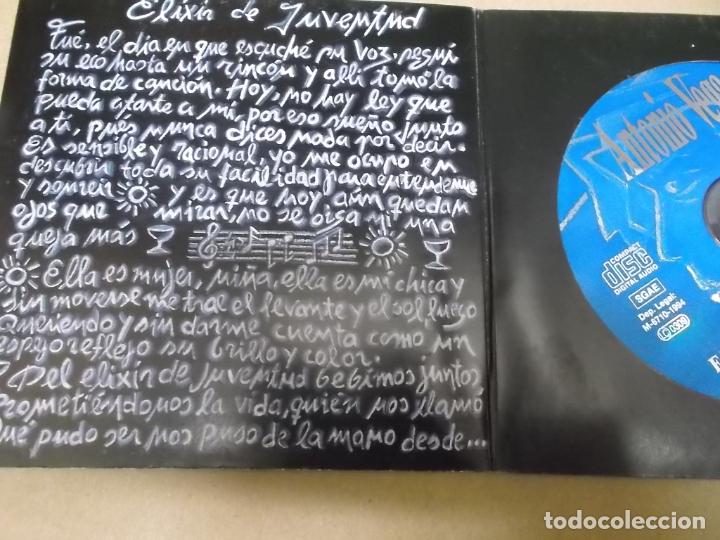 Elixir de Juventud
Fué, el día en que escuché su voz, seguí
su eco hasta un rincón y allí tomó la
forma de canción. Hoy, no hay ley que
pueda atarte a mí, por eso sueño junto
a ti, pués nunca dices nada por decir.
Es sensible y racional, yo me ocupo en
descubrir toda su facilidad para entenderme
y sonreir y es que hoy, aún quedan
ojos que miran, no se oiga ni una
queja más
Ella es mujer, niña, ella es mi chica y
sin moverse me trae el levante y el sol, luego
Queriendo y sin darme cuenta como un
espejo reflejo su brillo y color.
Del elixir de juventud bebimos juntos
Prometiéndonos la vida, quién nos llamó
Qué pudo ser nos puso de la mano desde...
Antonio Vega
COMPACT
disc
DIGITAL AUDIO
SGAE
Dep. Legal:
M-6710-1994
LC 0309
E
todocoleccion.net